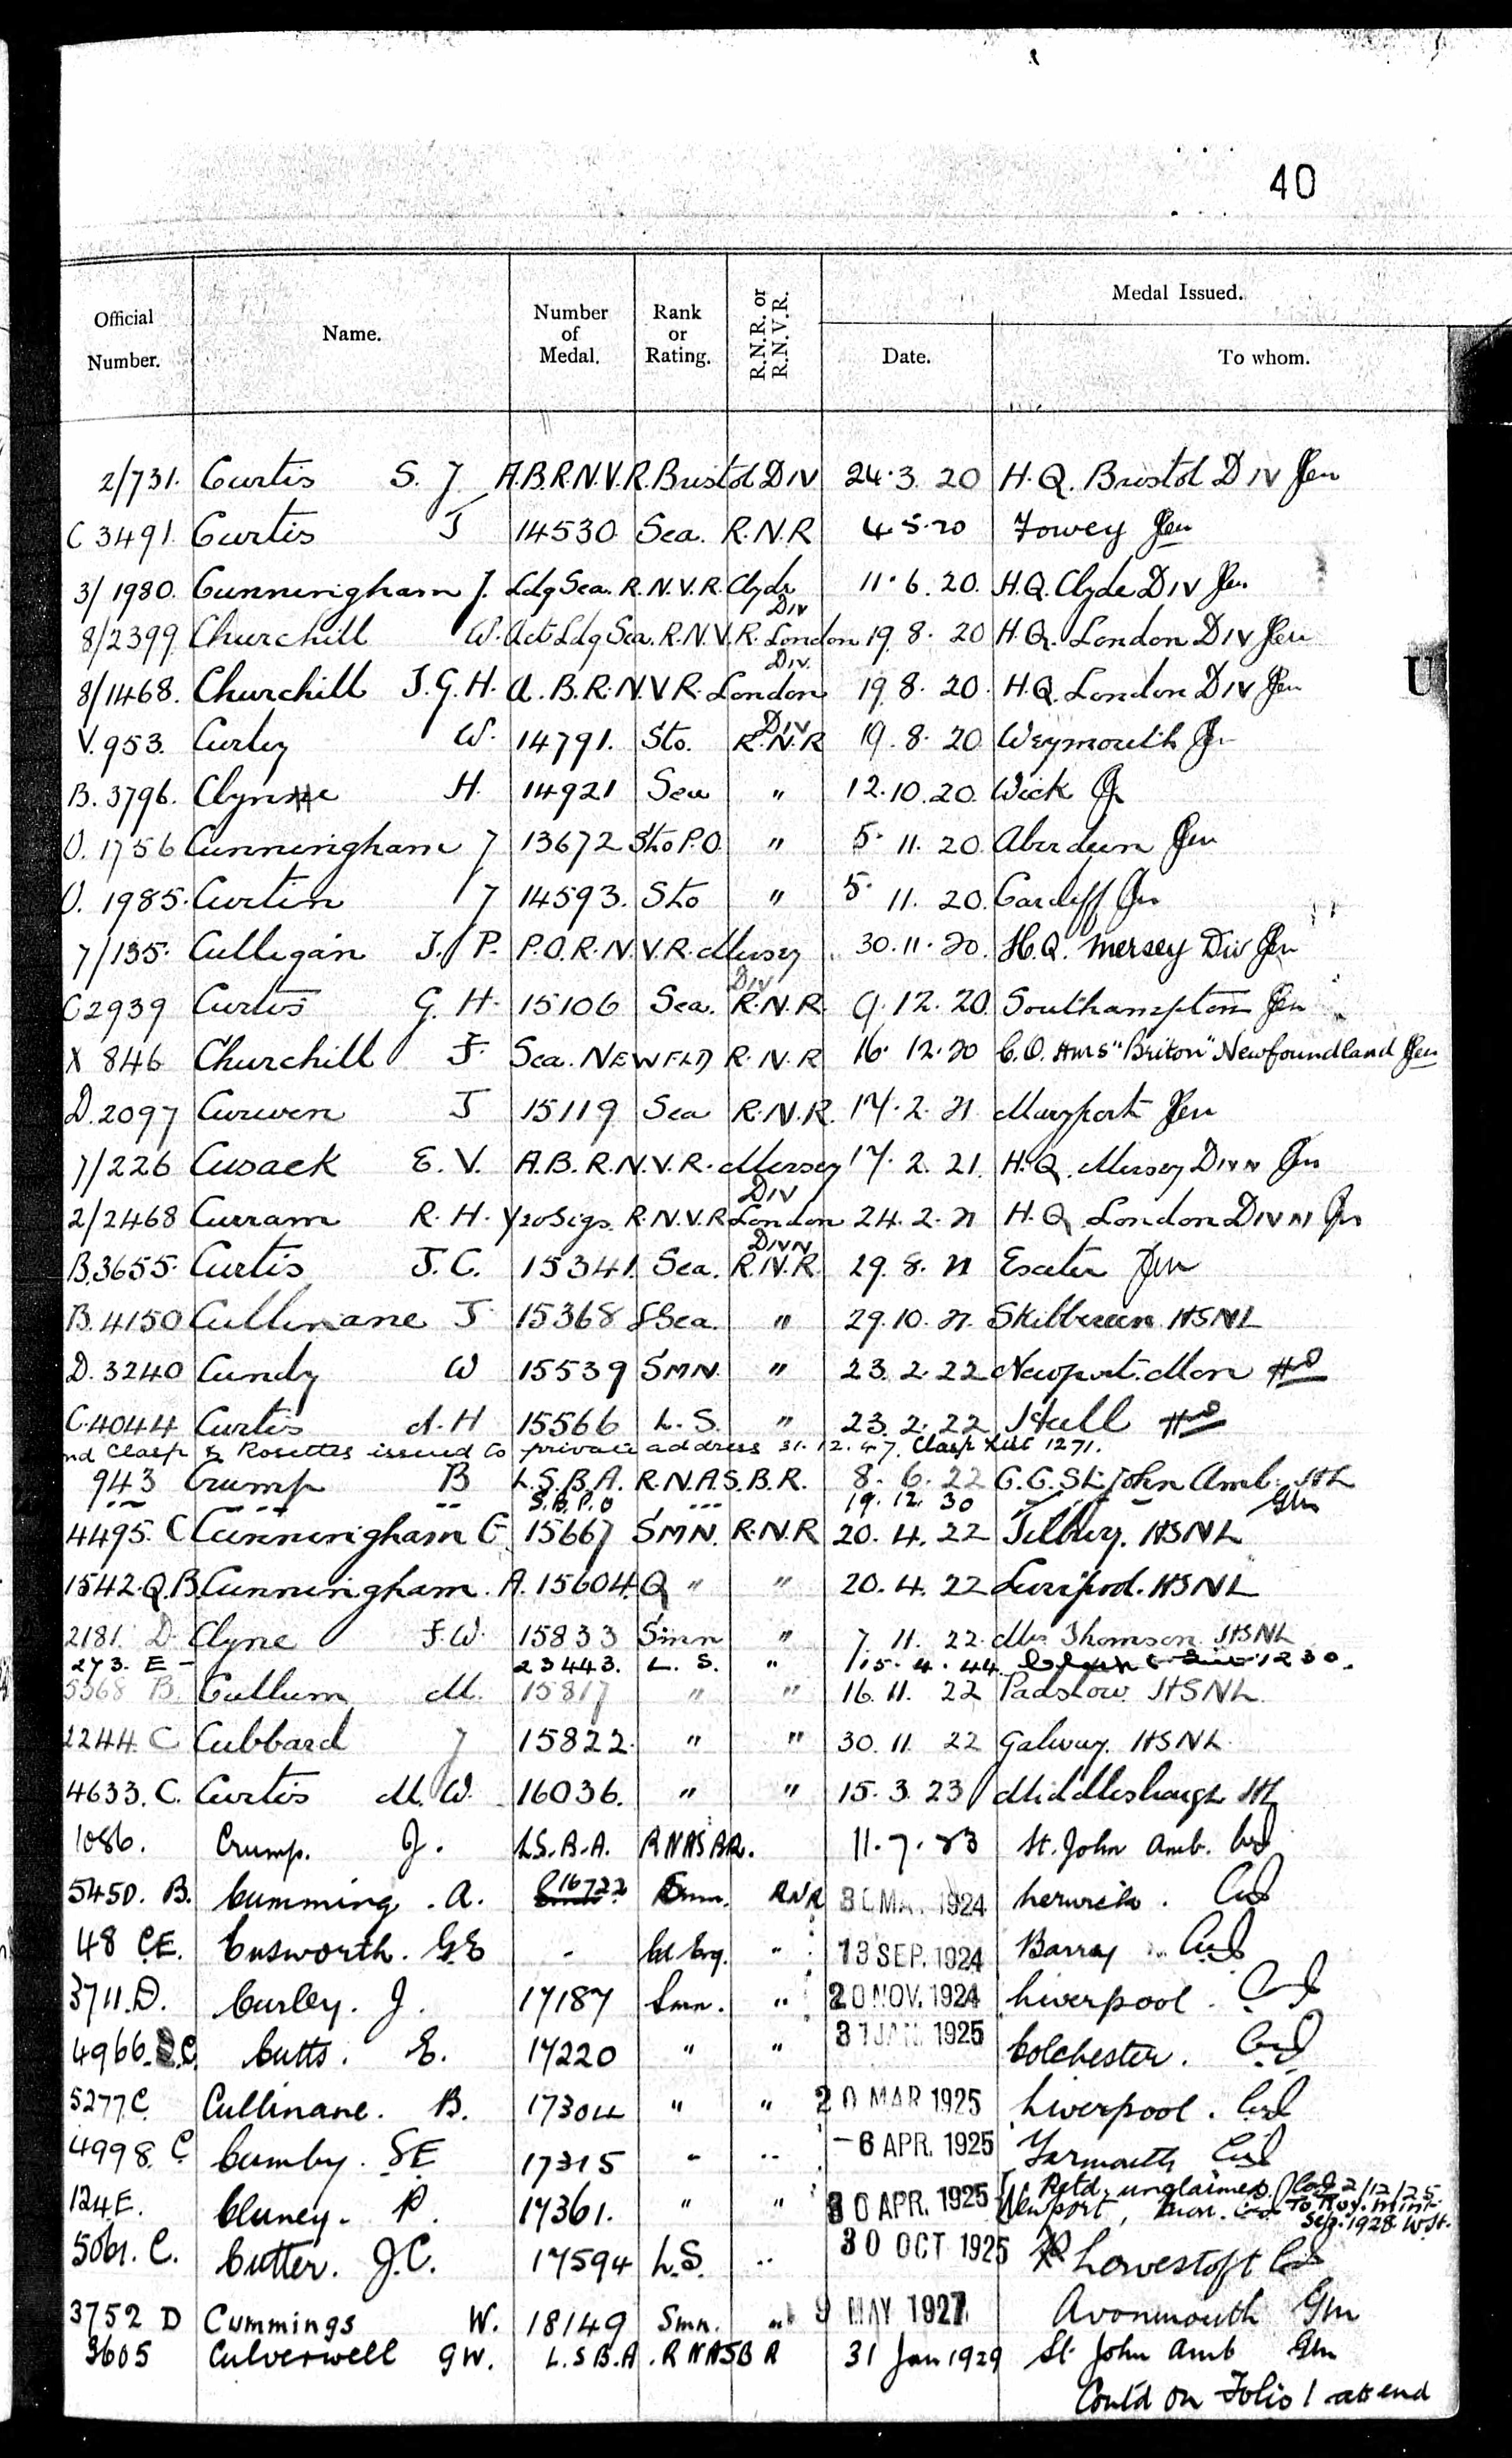 40
Official Number. Name. Number of Medal. Rank or Rating. R.N.R. or R.N.V.R. Medal Issued. Date. To whom.
2/731. Curtis S. J. A.B. R.N.V.R. Bristol DIV 24.3.20 H.Q. Bristol DIV
C 3491. Curtis J 14530 Sea. R.N.R 4.5.20 Fowey
3/1980. Cunningham J. Ldg Sea. R.N.V.R. Clyde DIV 11.6.20. H.Q. Clyde DIV
8/2399 Churchill W. Act Ldg Sea. R.N.V.R. London DIV. 19.8.20 H.Q. London DIV
8/1468. Churchill J.G.H. A.B. R.N.V.R. London DIV 19.8.20. H.Q. London DIV
V.953. Curley W. 14791. Sto. R.N.R 19.8.20 Weymouth
B.3796. Clyne H. 14921 Sea " 12.10.20. Wick
U.1756 Cunningham J 13672 Sto P.O. " 5.11.20. Aberdeen
U.1985. Curtin J 14593. Sto " 5.11.20. Cardiff
7/135. Culligan J. P. P.O. R.N.V.R. Mersey DIV 30.11.20. H.Q. Mersey Div
C2939 Curtis G. H. 15106 Sea. R.N.R. 9.12.20. Southampton
X 846 Churchill F. Sea. NEWFLD R.N.R 16.12.20 C.O. HMS "Briton" Newfoundland
D.2097 Curwen J 15119 Sea R.N.R. 17.2.21 Maryport
7/226 Cusack E. V. A.B. R.N.V.R. Mersey DIV 17.2.21. H.Q. Mersey DIVN
2/2468 Curram R. H. Y2o Sigs. R.N.V.R London DIVN 24.2.21 H.Q London DIVN
B.3655. Curtis J. C. 15341. Sea. R.N.R. 29.8.21 Exeter
B.4150 Cullinane J 15368 Sea. " 29.10.21. Skibbereen HSNL
D.3240 Cundy W 15539 SMN. " 23.2.22 Newport. Mon
C.4044 Curtis A. H 15566 L. S. " 23.2.22 Hull
nd Clasp & Rosettes issued to private address 31.12.47. Clasp List 1271.
943 Crump B L.S.B.A. R.N.A.S.B.R. 8.6.22 C.C. St. John Amb. HL
S.B.P.O 19.12.30 GM
4495. C Cunningham G. 15667 SMN. R.N.R 20.4.22 Tilbury. HSNL
1542.Q.B. Cunningham. A. 15604.Q " " 20.4.22 Liverpool. HSNL
2181. D. Clyne F.W. 15833 Smn " 7.11.22. Mrs Thomson HSNL
273. E - 23443. L. S. " 15.4.44. 1230.
5368 B. Cullum M. 15817 " " 16.11.22 Padstow HSNL.
2244. C Cubbard J 15822. " " 30.11.22 Galway. HSNL.
4633. C. Curtis M. W. 16036. " " 15.3.23 Middlesbrough HL
1086. Crump. J. L.S.B.A. RNASBR. 11.7.23 St. John Amb.
5450. B. Cumming. A. 16722 Smn. RNR 30 MAY 1924 Lerwick.
48 CE. Cusworth. G.E - " 13 SEP. 1924 Barray
3711. D. Curley. J. 17187 Smn. " 20 NOV. 1924 Liverpool.
4966. C. Cutts. E. 17220 " " 31 JAN. 1925 Colchester.
5277 C. Cullinane. B. 17304 " " 20 MAR 1925 Liverpool.
4998. C Cumby. S E 17315 " " -6 APR. 1925 Yarmouth
124 E. Cluney. P. 17361. " " 30 APR. 1925 Newport, Mon. Retd. unclaimed. 2/12/25 To Roy. Mint Sep. 1928.
5061. C. Cutter. J.C. 17594 L.S. " 30 OCT 1925 Lowestoft
3752 D Cummings W. 18149 Smn. " 9 MAY 1927. Avonmouth GM
3605 Culverwell GW. L.S B.A. R NASB R 31 Jan 1929 St John Amb GM
Contd on Folio 1 at end